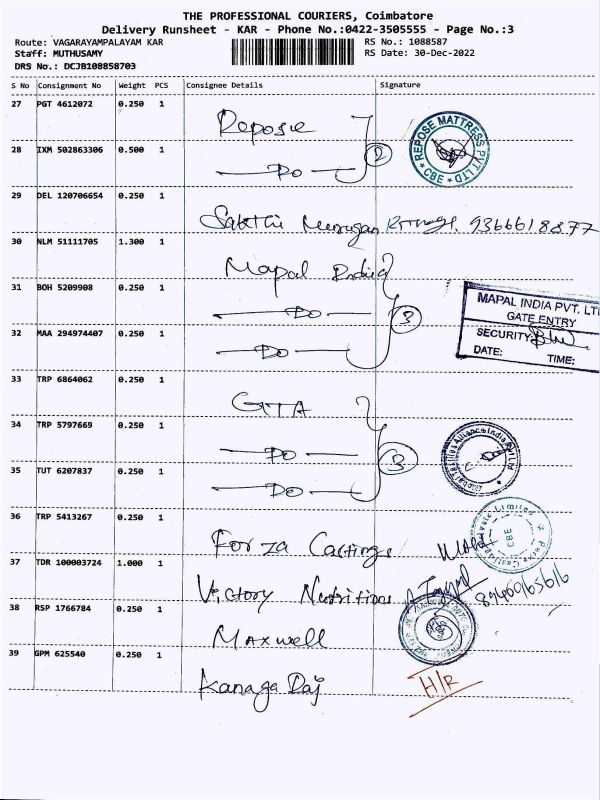 THE PROFESSIONAL COURIERS, Coimbatore
Delivery Runsheet - KAR - Phone No.:0422-3505555 - Page No.:3
Route: VAGARAYAMPALAYAM KAR
RS No.: 1088587
Staff: MUTHUSAMY
RS Date: 30-Dec-2022
DRS No.: DCJB108858703
S No Consignment No Weight PCS Consignee Details Signature
27 PGT 4612072 0.250 1
Repose
REPOSE MATTRESS PVT LTD
* CBE *
28 IXM 502863306 0.500 1
Do
2
29 DEL 120706654 0.250 1
Sakthi Murugan 9366618877
30 NLM 51111705 1.300 1
Mapal India
31 BOH 5209908 0.250 1
Do
3
MAPAL INDIA PVT. LT
GATE ENTRY
SECURITY
DATE: TIME:
32 MAA 294974407 0.250 1
Do
33 TRP 6864062 0.250 1
GTTA
34 TRP 5797669 0.250 1
Do
3
Alliance India Pvt Ltd
35 TUT 6207837 0.250 1
Do
36 TRP 5413267 0.250 1
Forza Castings
Private Limited
CBE
37 TDR 100003724 1.000 1
Victory Nutritions
8940965616
38 RSP 1766784 0.250 1
Maxwell
39 GPM 625540 0.250 1
Kanaga Raj
H/R